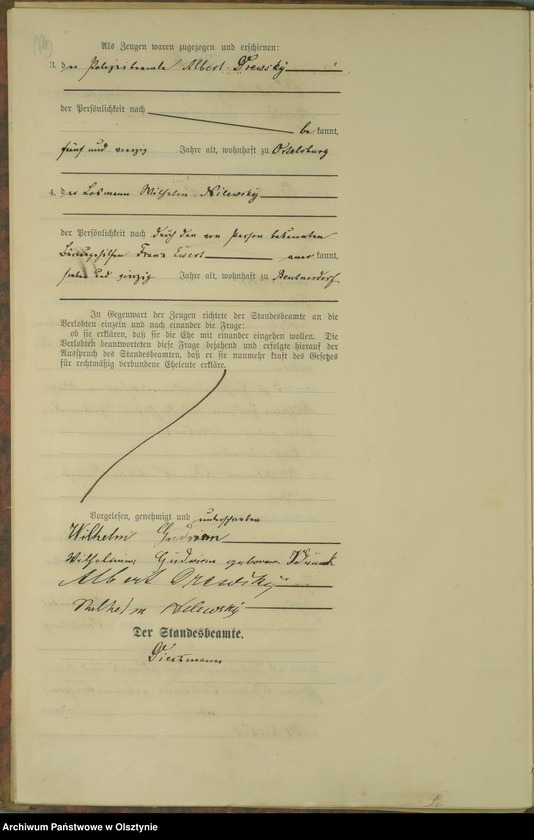 Als Zeugen waren zugezogen und erschienen:
3. der Polizeibeamte Albert Drewsky
der Persönlichkeit nach
be kannt,
fünf und vierzig Jahre alt, wohnhaft zu Ortelsburg
4. der Losmann Wilhelm Milewsky
der Persönlichkeit nach durch den von Person bekannten
Bürogehilfen Franz Ewert aner kannt,
sieben und vierzig Jahre alt, wohnhaft zu Beutnerdorf
In Gegenwart der Zeugen richtete der Standesbeamte an die
Verlobten einzeln und nach einander die Frage:
ob sie erklären, daß sie die Ehe mit einander eingehen wollen. Die
Verlobten beantworteten diese Frage bejahend und erfolgte hierauf der
Ausspruch des Standesbeamten, daß er sie nunmehr kraft des Gesetzes
für rechtmäßig verbundene Eheleute erkläre.
Vorgelesen, genehmigt und unterschrieben
Wilhelm
Wilhelmine geborene
Albert Drewsky
Wilhelm Milewsky
Der Standesbeamte.
Archiwum Państwowe w Olsztynie